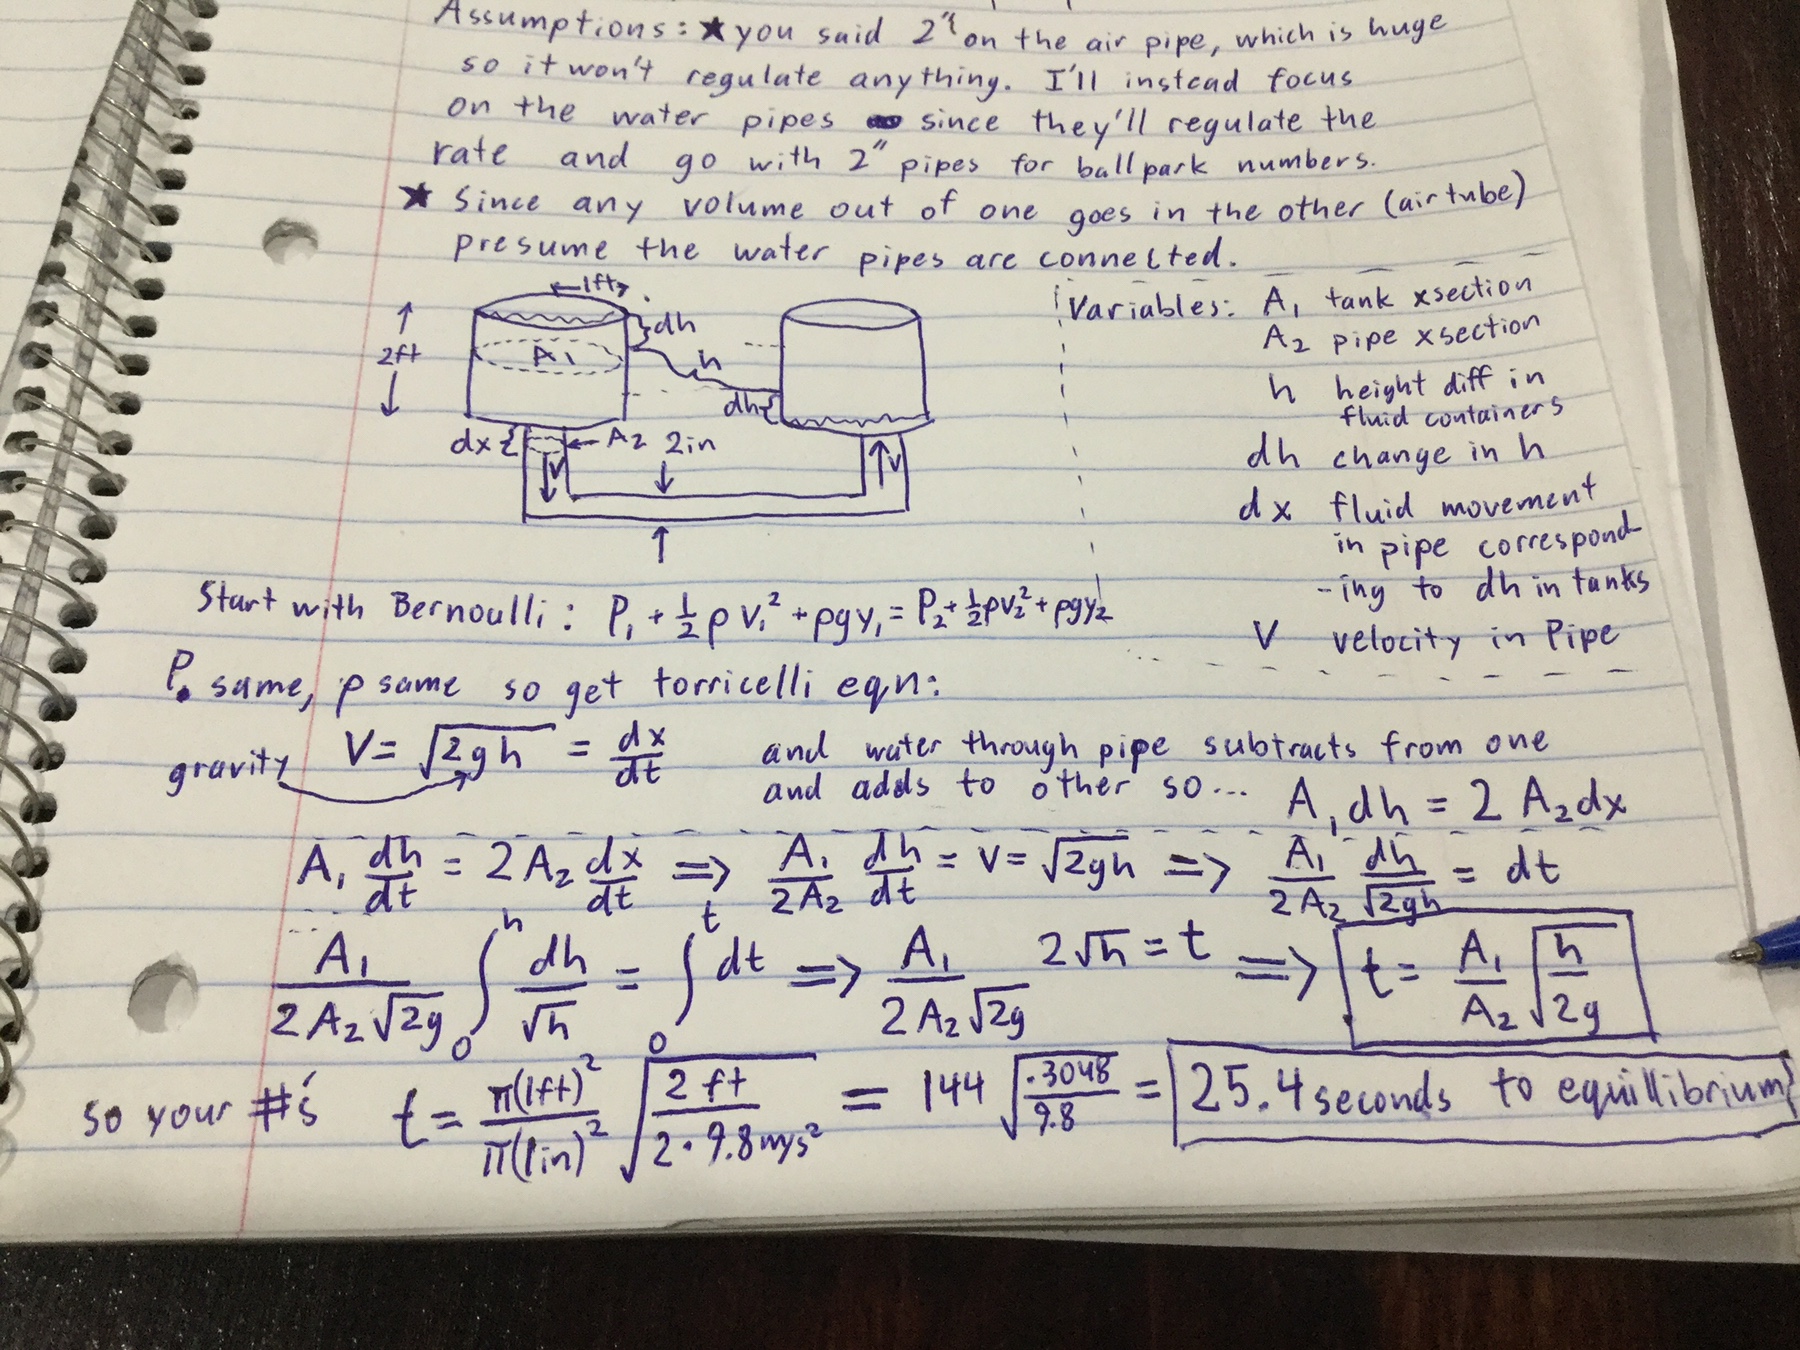 Assumptions: ★ you said 2" on the air pipe, which is huge
so it won't regulate anything. I'll instead focus
on the water pipes since they'll regulate the
rate and go with 2" pipes for ballpark numbers.
★ Since any volume out of one goes in the other (air tube)
presume the water pipes are connected.
←1ft→
dh
2ft
A₁
h
dh
dx
A₂ 2in
V
V
Variables: A₁ tank xsection
A₂ pipe xsection
h height diff in
fluid containers
dh change in h
dx fluid movement
in pipe correspond-
-ing to dh in tanks
V velocity in Pipe
Start with Bernoulli: P₁ + ½ρv₁² + ρgy₁ = P₂ + ½ρv₂² + ρgy₂
P same, ρ same so get torricelli eqn:
gravity V = √(2gh) = dx/dt
and water through pipe subtracts from one
and adds to other so... A₁dh = 2 A₂dx
A₁ dh/dt = 2A₂ dx/dt ⇒ A₁/2A₂ dh/dt = V = √(2gh) ⇒ A₁/2A₂ dh/√(2gh) = dt
A₁/(2A₂√(2g)) ∫₀ʰ dh/√h = ∫₀ᵗ dt ⇒ A₁/(2A₂√(2g)) 2√h = t ⇒ t = A₁/A₂ √(h/2g)
so your #'s t = π(1ft)²/π(1in)² √(2 ft/(2·9.8m/s²)) = 144 √(.3048/9.8) = 25.4 seconds to equillibrium